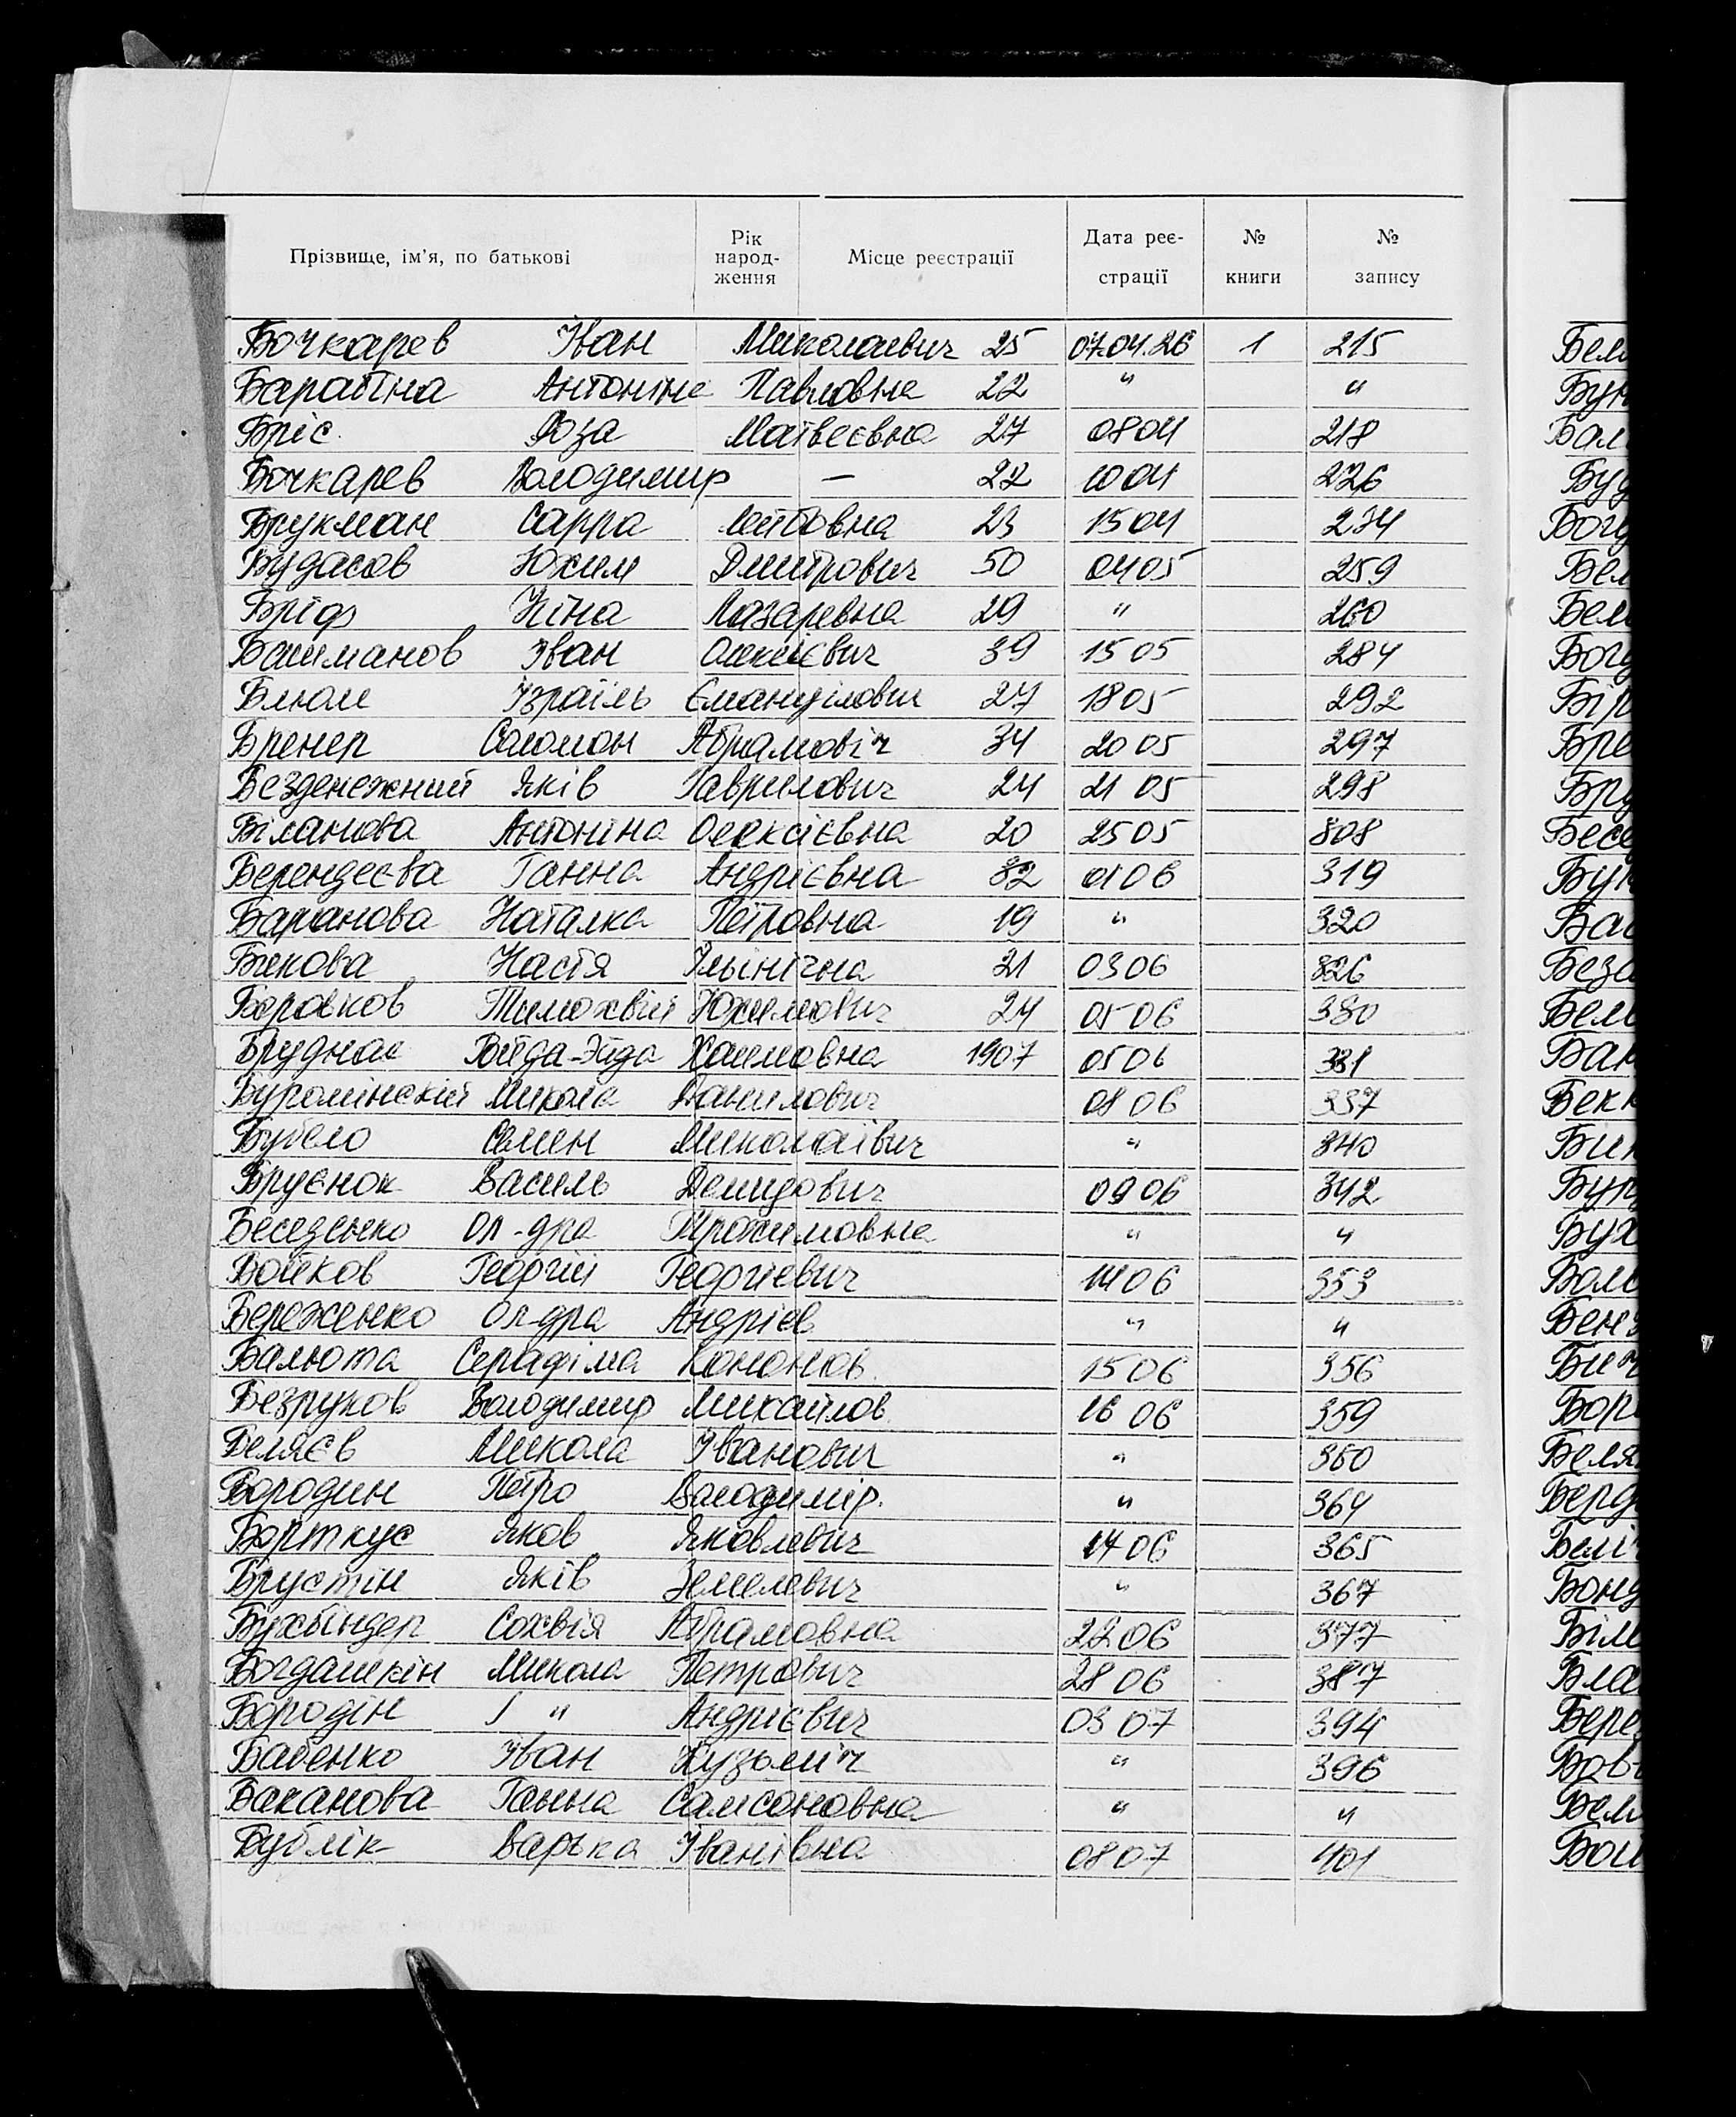 Прізвище, ім'я, по батькові Рік народ-ження Місце реєстрації Дата реє-страції № книги № запису
Бочкарев Іван Миколаевич 25 07.04.26 1 215
Антоніна Павловна 22 " "
Бріс Роза Матвеєвна 27 08 04 218
Бочкарев Володимир — 22 10 04 226
Брукман Сарра 23 15 04 234
Будасов Юхим Дмитрович 50 04 05 259
Бріф Ніна Лазаревна 29 " 260
Башманов Іван Олексієвич 39 15 05 284
Блюм Ізраїль Емануілович 27 18 05 292
Бренер Соломон Абрамовіч 34 20 05 297
Безденежний Яків Гаврилович 24 21 05 298
Біланова Антоніна Олексієвна 20 25 05 308
Берендеєва Ганна Андрієвна 32 01 06 319
Баранова Наталка Петровна 19 " 320
Бикова Настя Ільінічна 21 03 06 326
Боровков Тимохвій Юхимович 24 05 06 330
Хаимовна 1907 05 06 331
Буромінскій Микола Данилович 08 06 337
Семен Миколаівич " 340
Бруєнок Василь Демидович 09 06 342
Беседенко Ол-дра Трохимовна " "
Войков Георгій Георгіевич 14 06 353
Береженко Ол-дра Андрієв. " "
Балюта Серафіма Кононов. 15 06 356
Безруков Володимир Михайлов. 16 06 359
Беляєв Микола Іванович " 360
Бородин Петро Володимір. " 364
Борткус Яков Яковлевич 14 06 365
Брустін Яків Земелевич " 367
Бухбіндер Сохвія Абрамовна 22 06 377
Богдашкін Микола Петрович 28 06 387
Бородін " Андрієвич 03 07 394
Бабенко Іван Кузьміч " 396
Баканова Ганна Самсоновна " "
Бублік Варька Іванівна 08 07 401